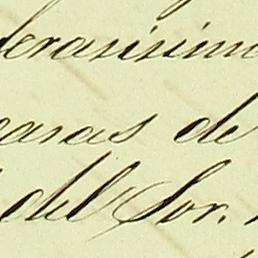 derarisim
caras de
del Sor.